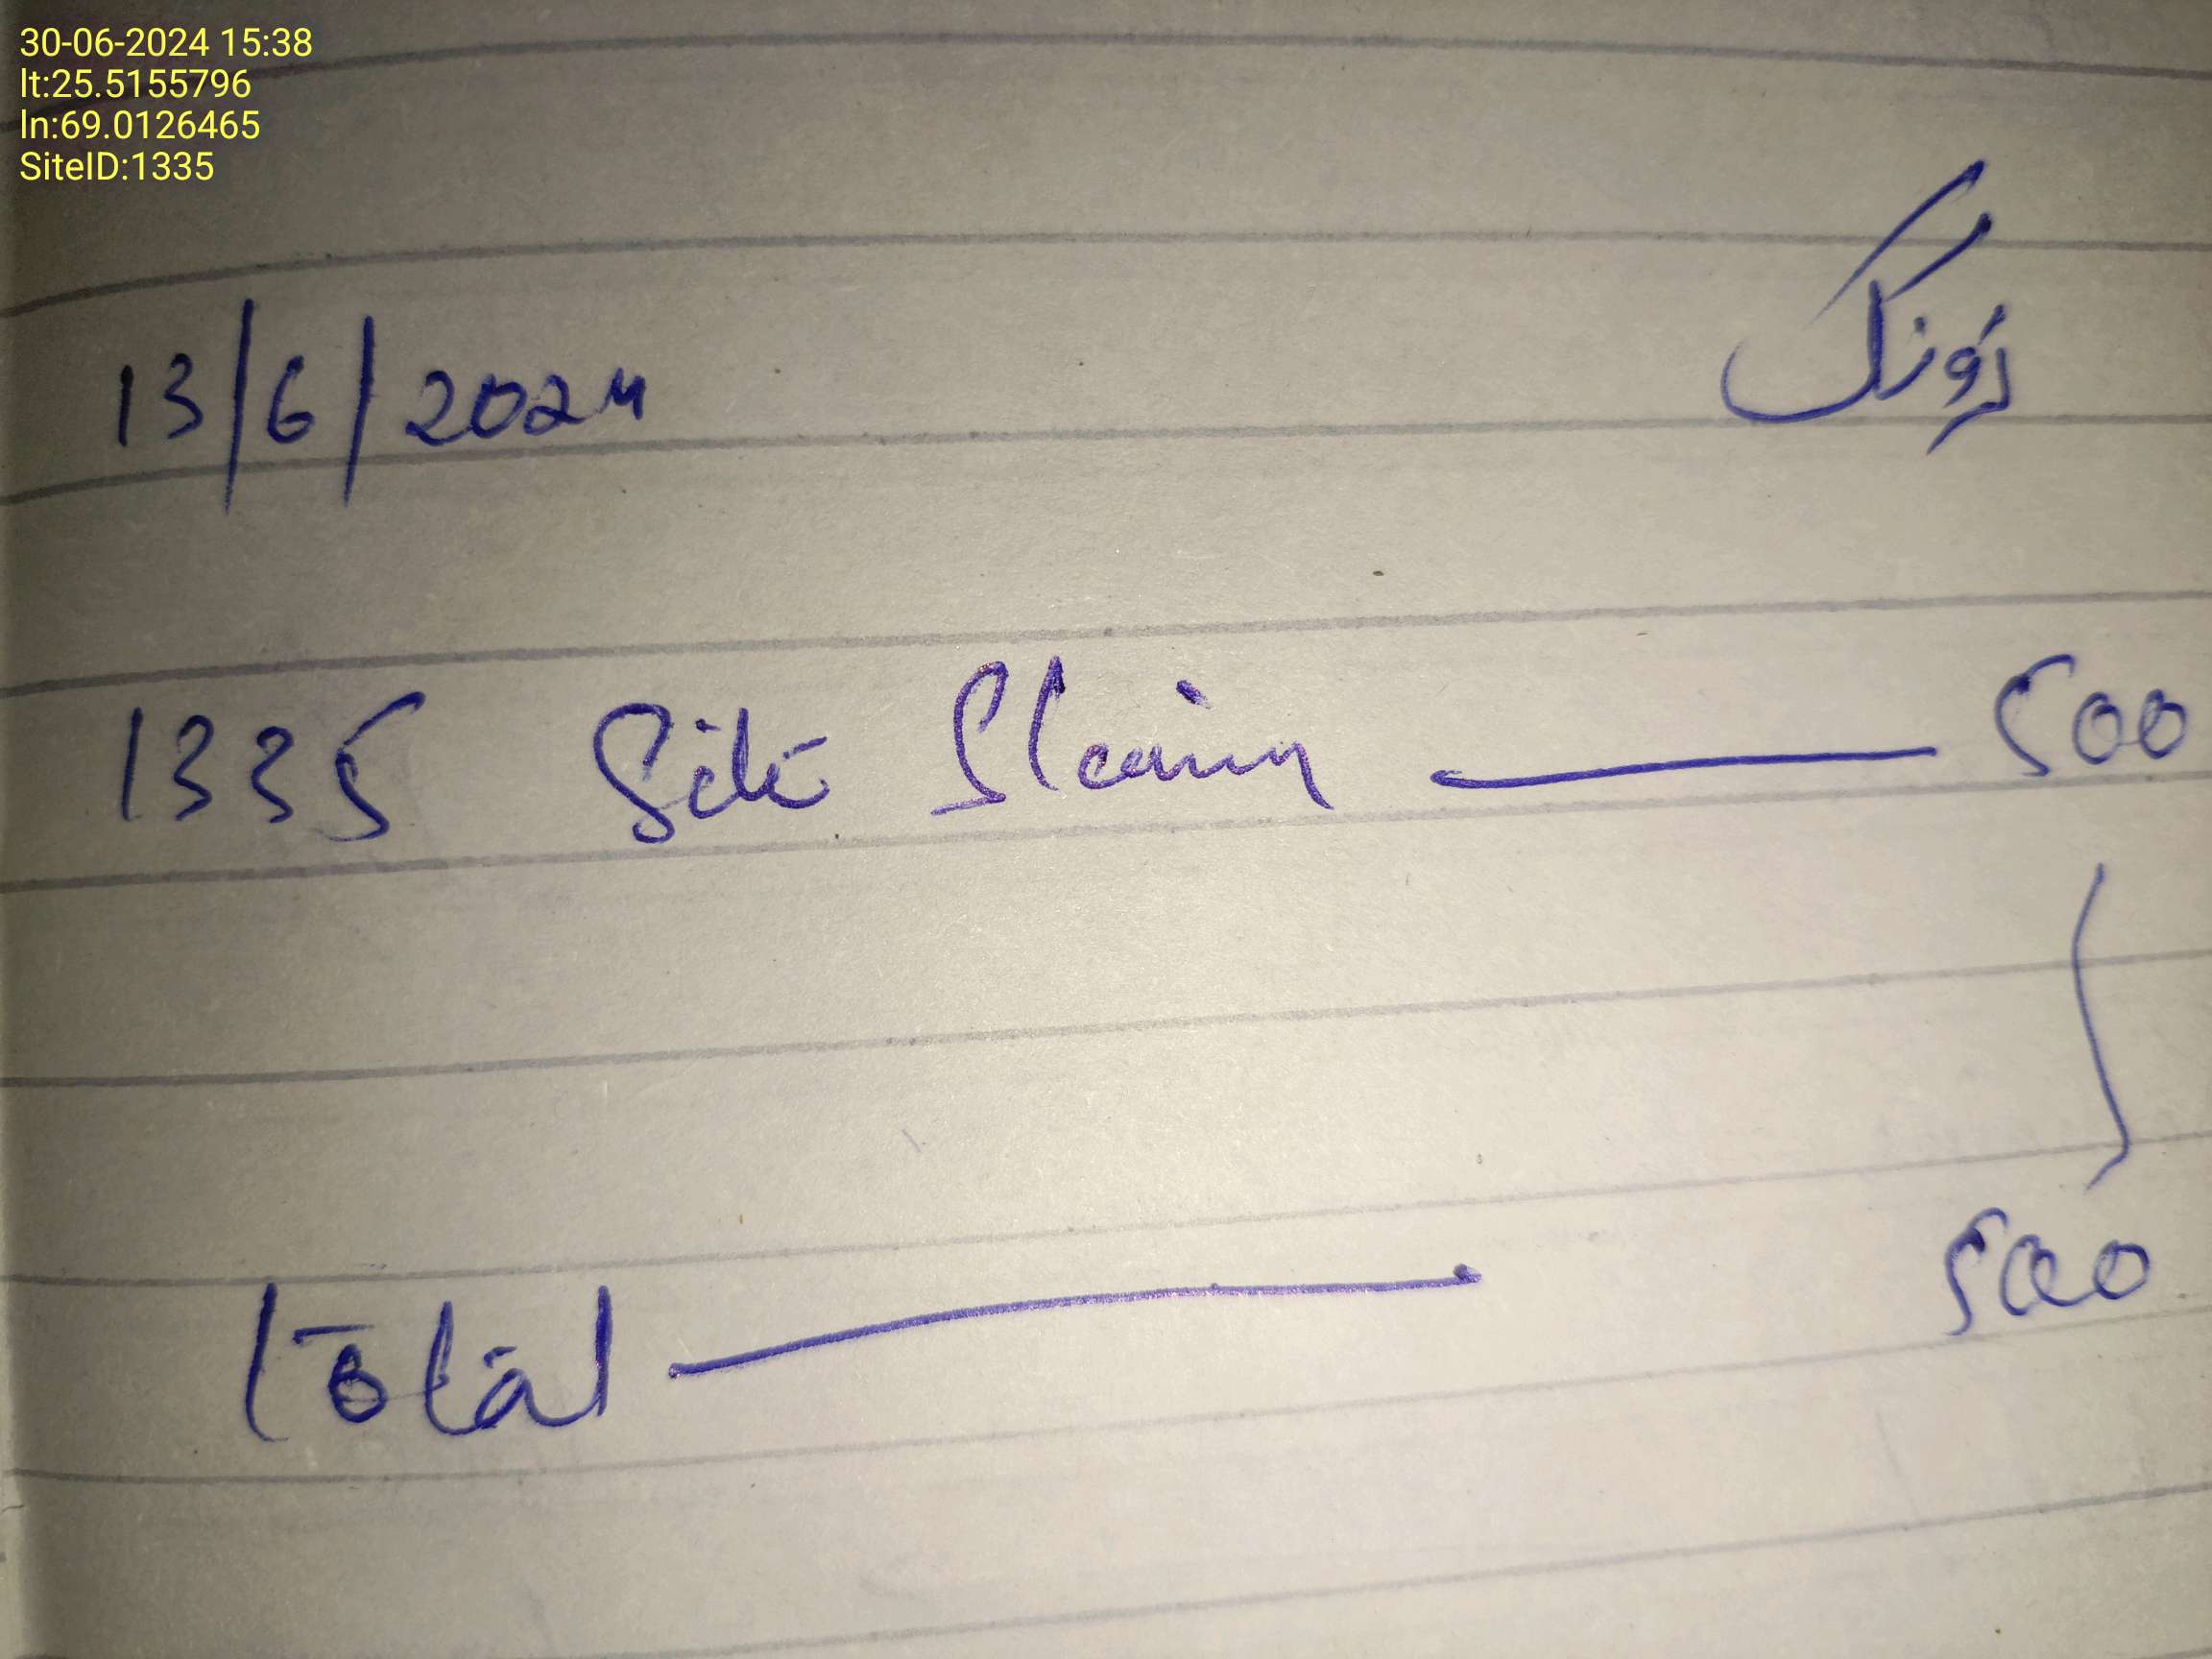 30-06-2024 15:38
lt:25.5155796
ln:69.0126465
SiteID:1335
13/6/2024
1335 Site Sleaning — 500
Total — 500